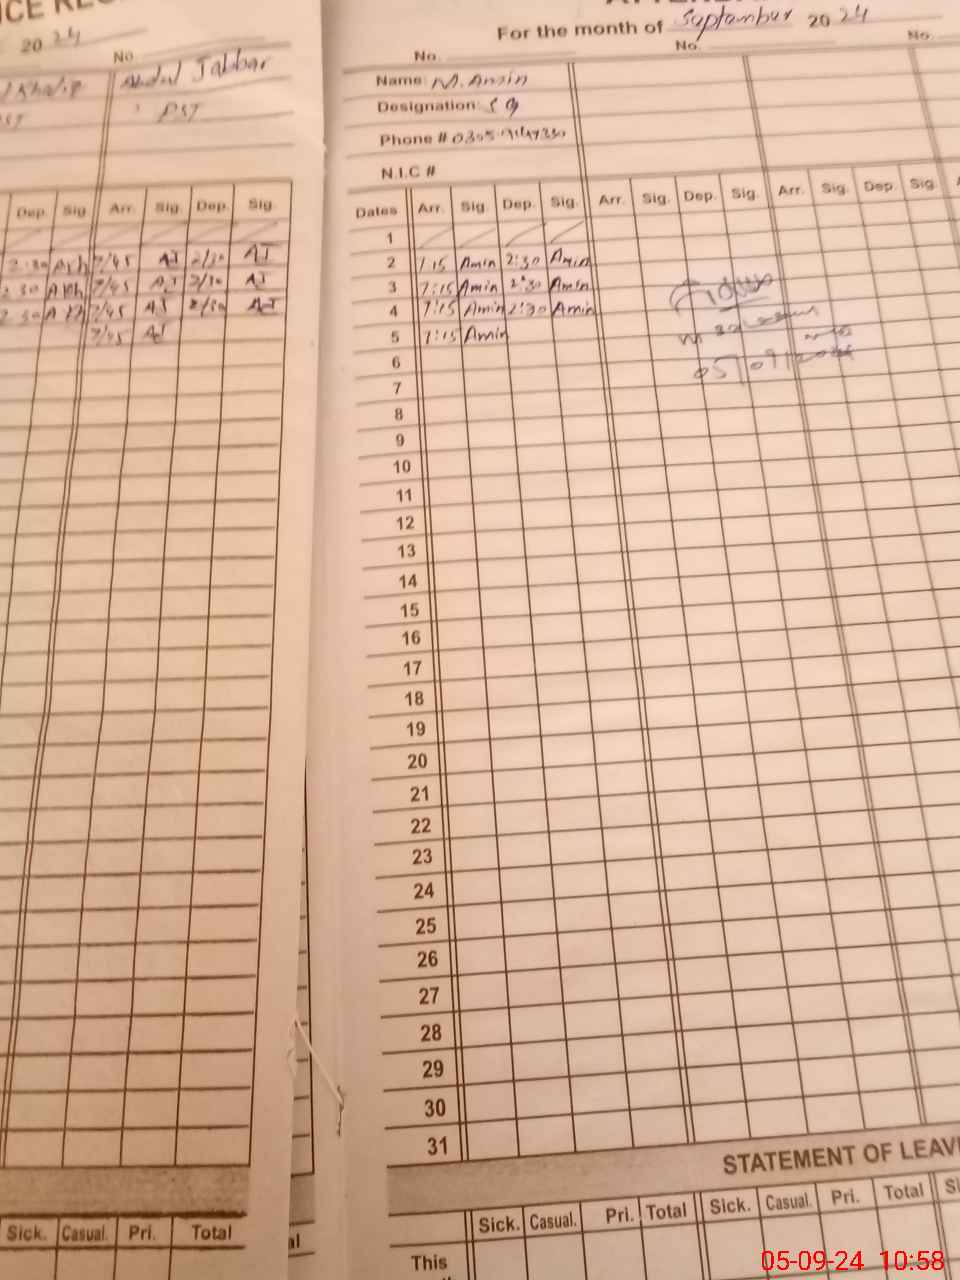 20 24
No.
Abdul Jabbar
PST
Dep. Sig. Arr. Sig. Dep. Sig.
2:30 AKh 7/45 AJ 2/30 AJ
2 30 AKh 7/45 AJ 2/30 AJ
2 30 AKh 7/45 AJ 2/30 AJ
7/45 AJ
Sick. Casual. Pri. Total
For the month of September 20 24
No. No. No.
Name: M. Amin
Designation:
Phone #
N.I.C #
Dates Arr. Sig. Dep. Sig. Arr. Sig. Dep. Sig. Arr. Sig. Dep. Sig.
1
2 7:15 Amin 2:30 Amin
3 7:15 Amin 2:30 Amin
4 7:15 Amin 2:30 Amin
5 7:15 Amin
05/09/2024
6
7
8
9
10
11
12
13
14
15
16
17
18
19
20
21
22
23
24
25
26
27
28
29
30
31
STATEMENT OF LEAV
Sick. Casual. Pri. Total Sick. Casual. Pri. Total
This
05-09-24 10:58